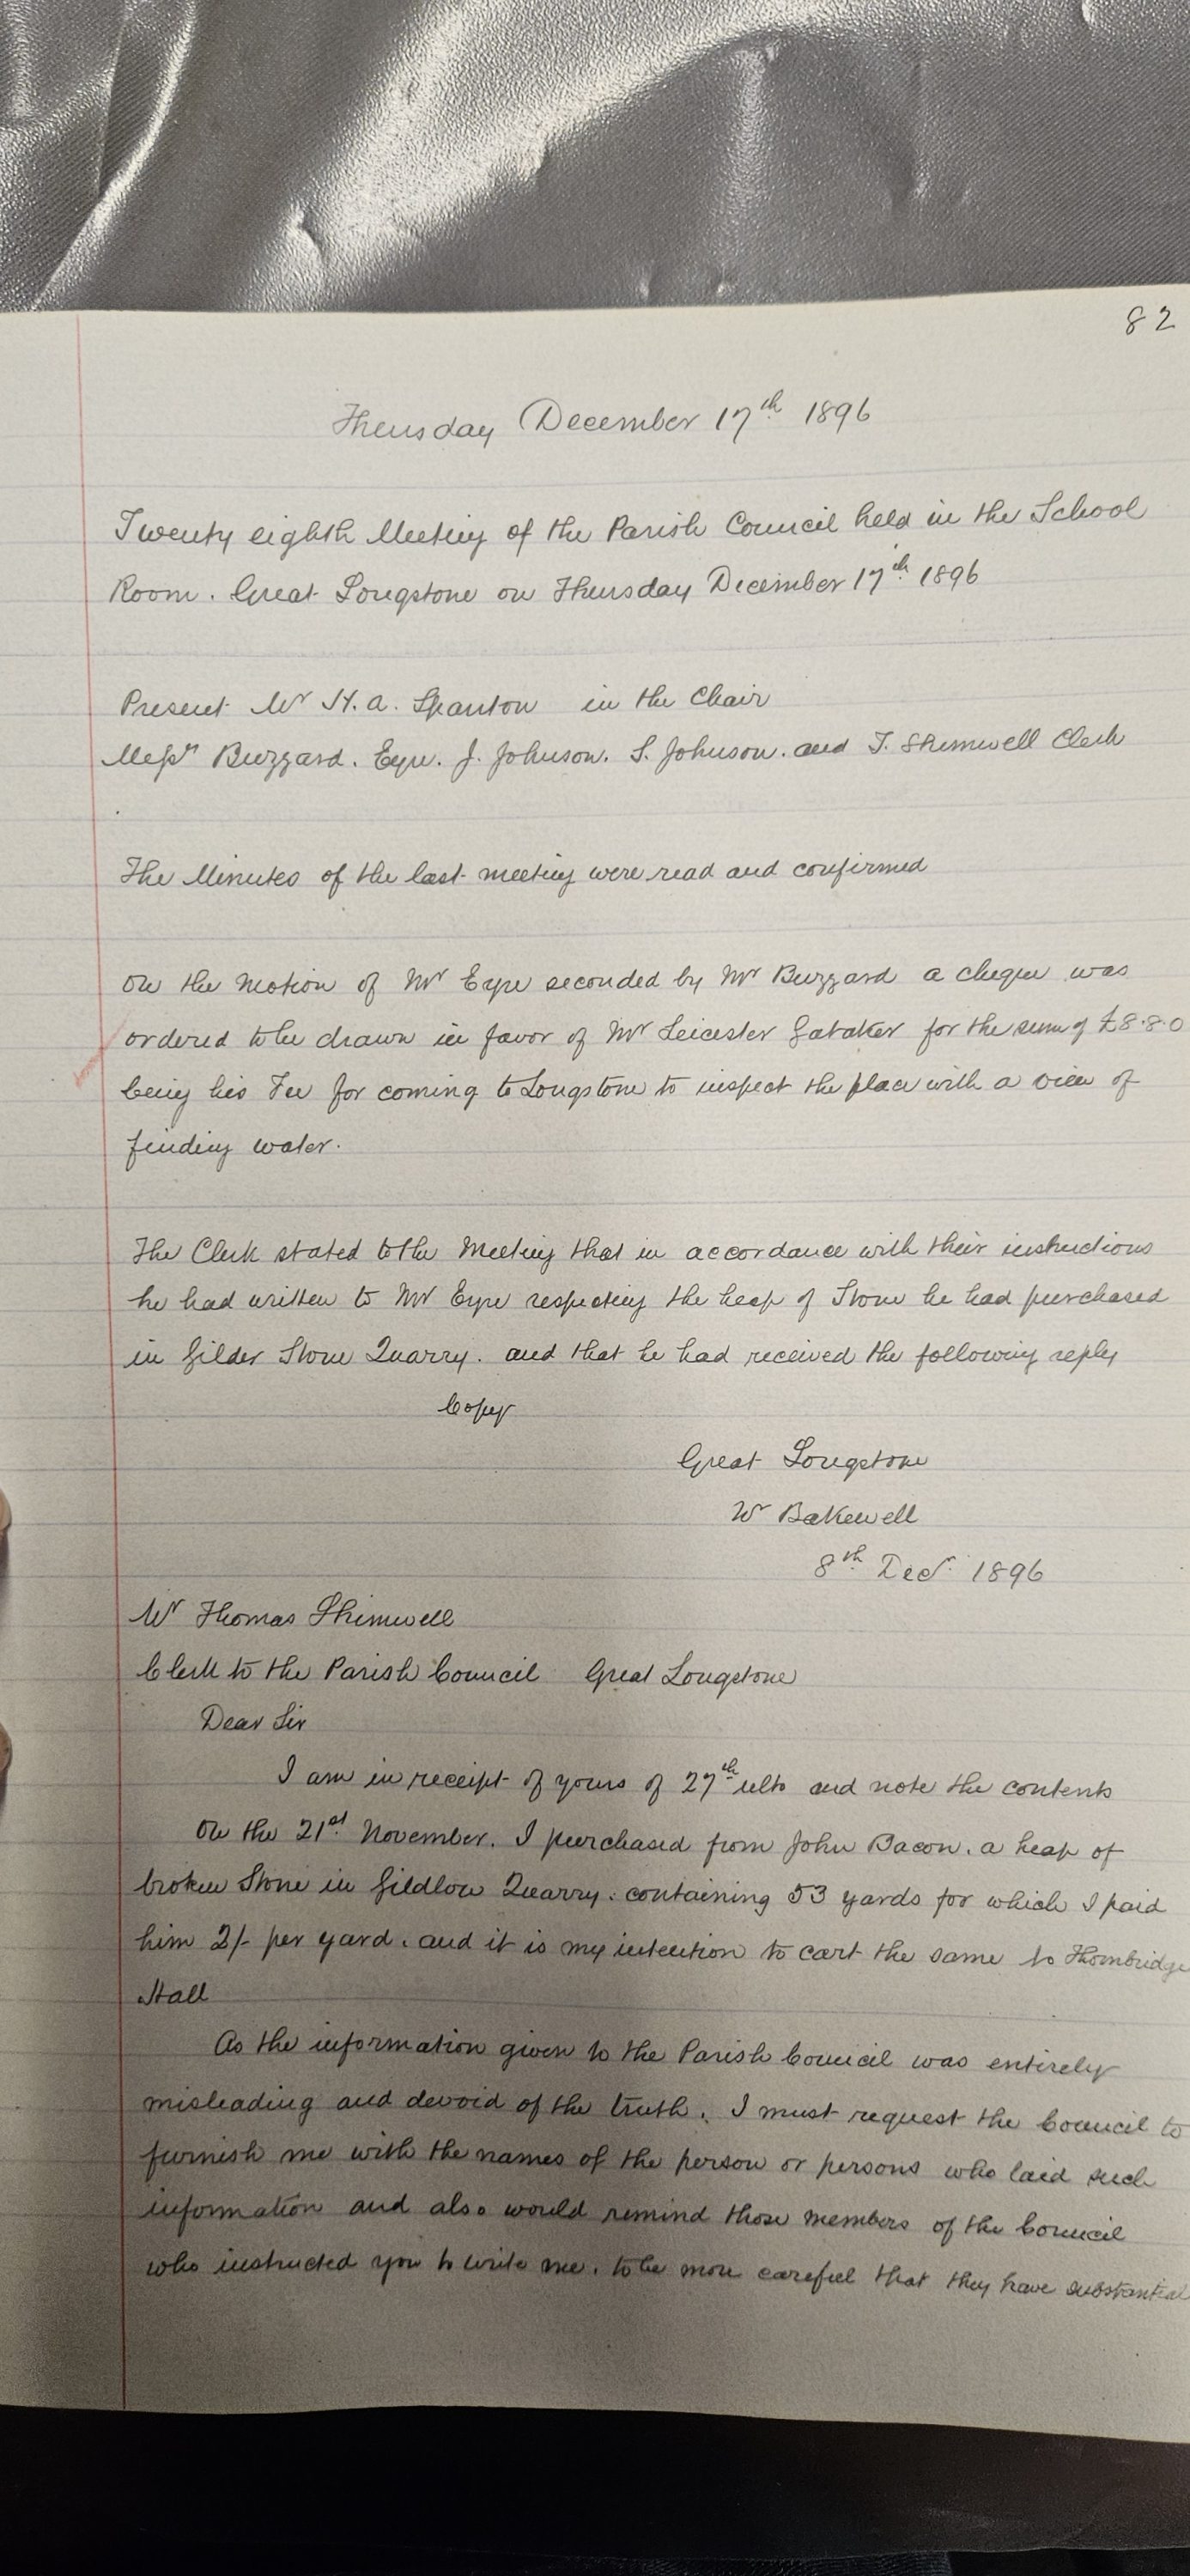 82
Thursday December 17th 1896
Twenty eighth Meeting of the Parish Council held in the School
Room. Great Longstone on Thursday December 17th 1896
Present Mr H. A. Spanton in the Chair
Messrs Buzzard. Eyre. J. Johnson. S. Johnson. and T. Shimwell Clerk
The Minutes of the last meeting were read and confirmed
On the Motion of Mr Eyre seconded by Mr Buzzard a cheque was
ordered to be drawn in favor of Mr Leicester Gataker for the sum of £8.8.0
being his Fee for coming to Longstone to inspect the place with a view of
finding water.
The Clerk stated to the Meeting that in accordance with their instructions
he had written to Mr Eyre respecting the heap of Stone he had purchased
in Gilder Stone Quarry. and that he had received the following reply
Copy
Great Longstone
Nr Bakewell
8th Decr. 1896
Mr Thomas Shimwell
Clerk to the Parish Council Great Longstone
Dear Sir
I am in receipt of yours of 27th ulto and note the contents
On the 21st November. I purchased from John Bacon. a heap of
broken Stone in Gildlow Quarry. containing 53 yards for which I paid
him 2/- per yard. and it is my intention to cart the same to Thornbridge
Hall
As the information given to the Parish Council was entirely
misleading and devoid of the truth. I must request the Council to
furnish me with the names of the person or persons who laid such
information and also would remind those members of the Council
who instructed you to write me. to be more careful that they have substantial